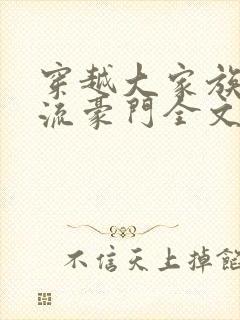 穿越大家族
流豪門全文
不信天上掉餡